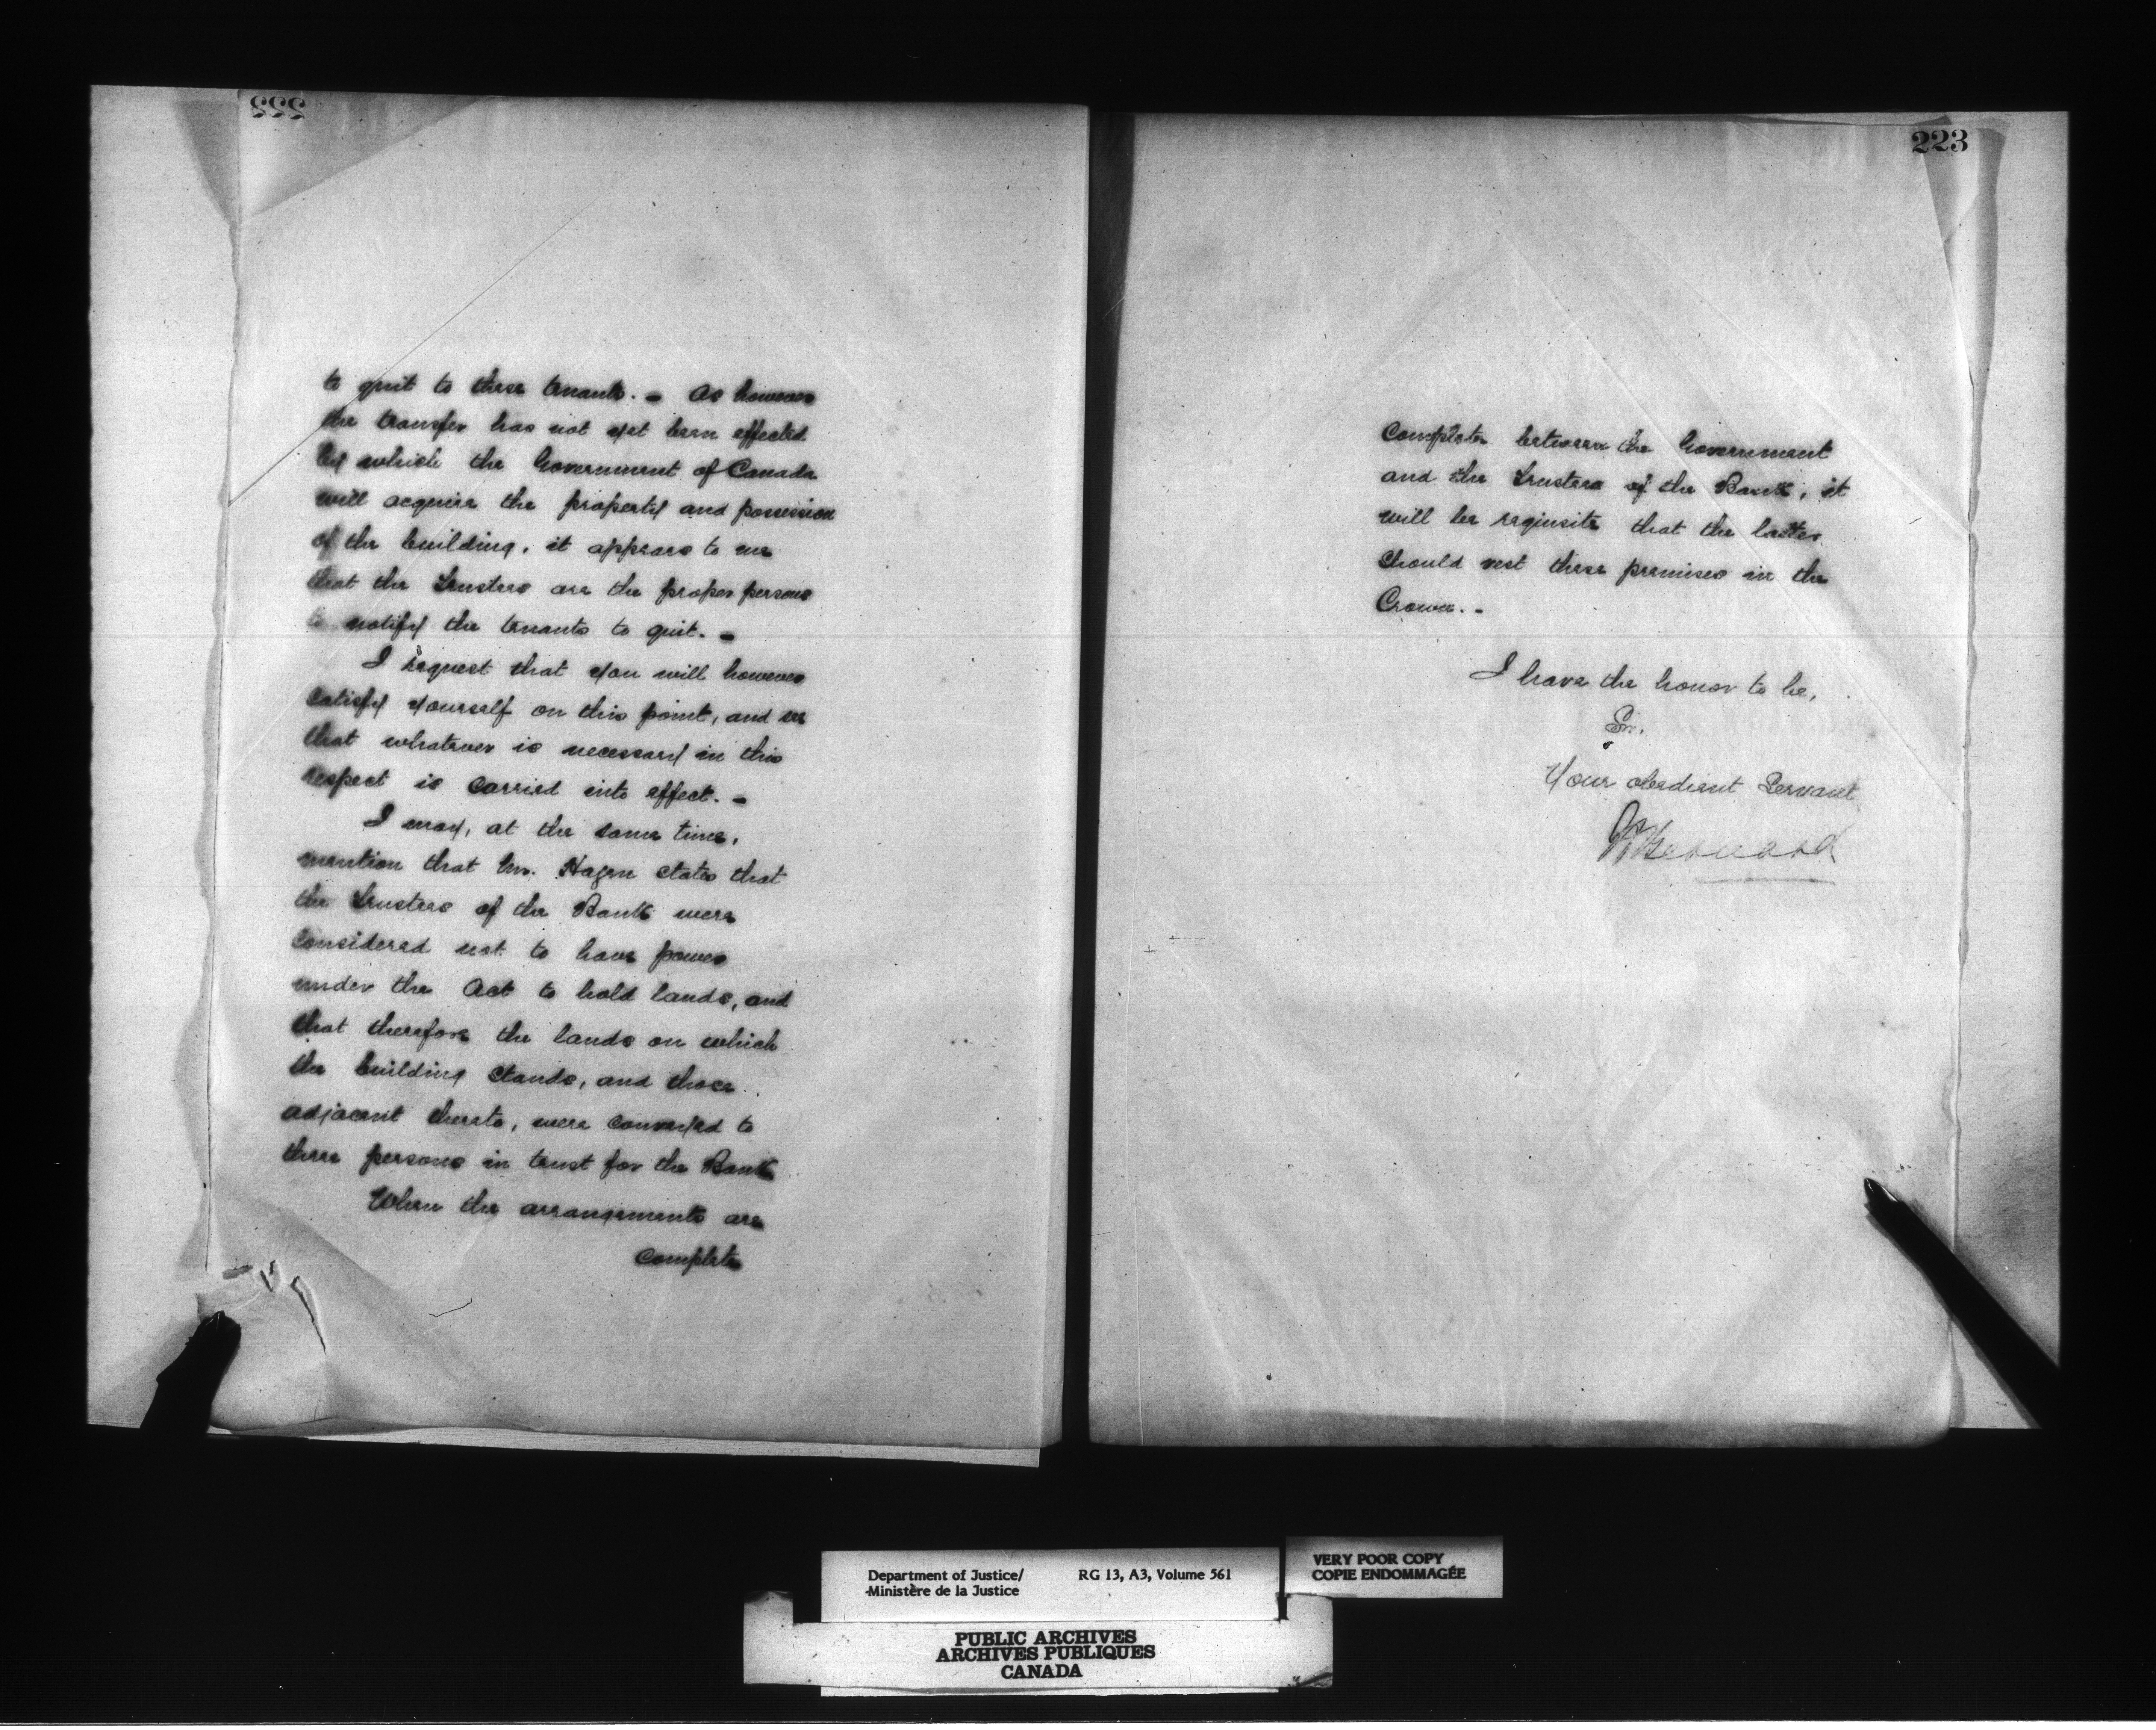 222
to quit to these tenants. - As however
the transfer has not yet been effected
by which the Government of Canada
will acquire the property and possession
of the building, it appears to me
that the Trustees are the proper persons
to notify the tenants to quit. -
I request that you will however
satisfy yourself on this point, and see
that whatever is necessary in this
respect is carried into effect. -
I may, at the same time,
mention that Mr. Hazen states that
the Trustees of the Bank were
considered not to have power
under the Act to hold lands, and
that therefore the lands on which
the building stands, and those
adjacent thereto, were conveyed to
three persons in trust for the Bank
When the arrangements are
complete
223
Complete between the Government
and the Trustees of the Bank, it
will be requisite that the latter
should vest these premises in the
Crown. -
I have the honor to be,
Sir,
Your obedient Servant
Bernard
Department of Justice/
Ministère de la Justice
RG 13, A3, Volume 561
VERY POOR COPY
COPIE ENDOMMAGÉE
PUBLIC ARCHIVES
ARCHIVES PUBLIQUES
CANADA